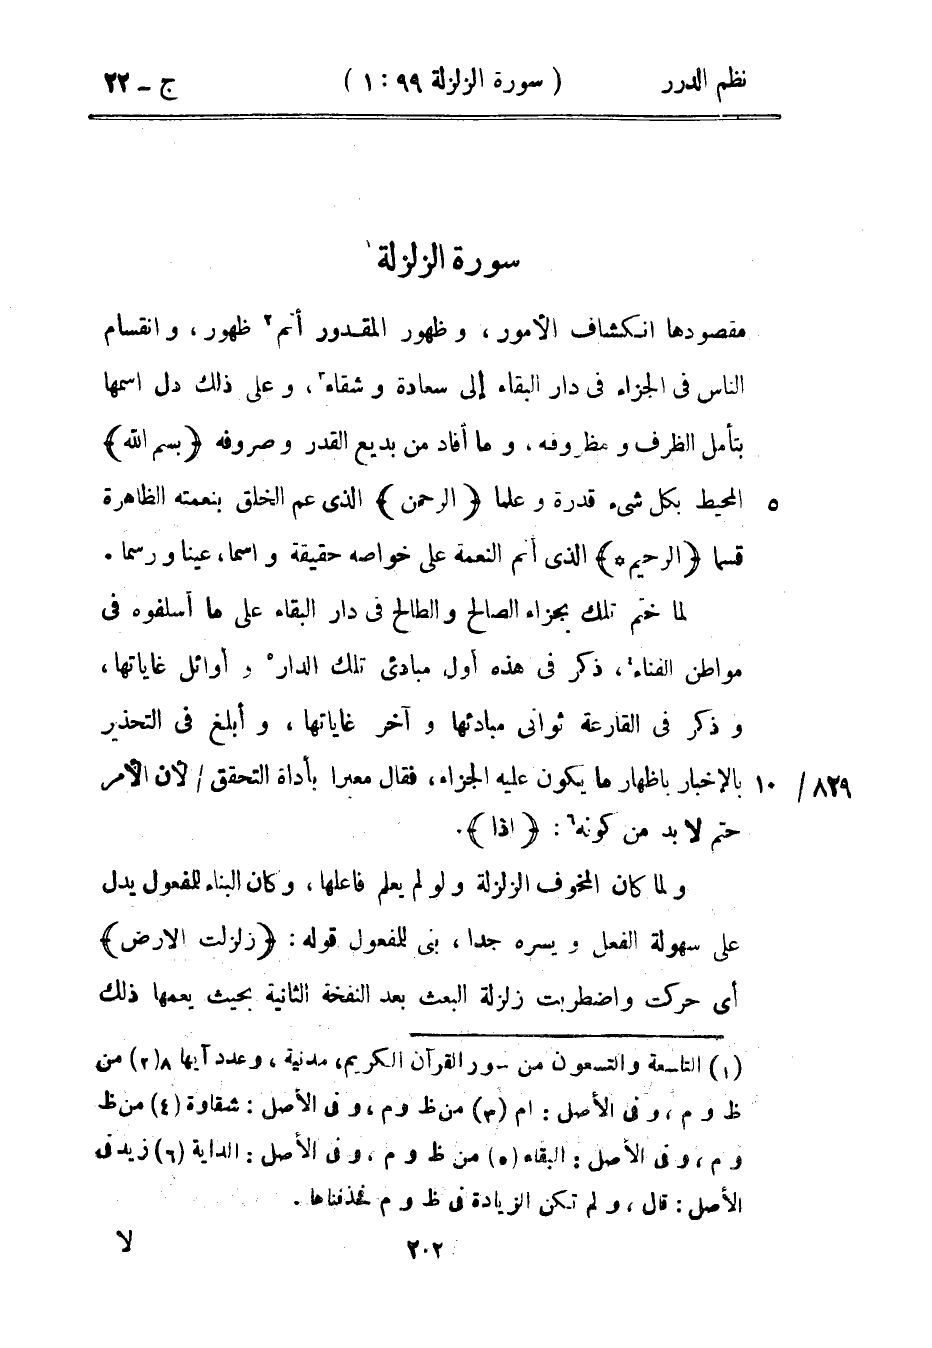 نظم الدرر ( سورة الزلزلة ٩٩ : ١ ) ج - ٢٢
سورة الزلزلة١
مقصودها انكشاف الأمور ، و ظهور المقدور أتم٢ ظهور ، و انقسام
الناس فى الجزاء فى دار البقاء إلى سعادة و شقاء٣ ، و على ذلك دل اسمها
بتأمل الظرف و مظروفه ، و ما أفاد من بديع القدر و صروفه ﴿ بسم الله ﴾
٥ المحيط بكل شىء قدرة و علما ﴿ الرحمن ﴾ الذى عم الخلق بنعمته الظاهرة
قسما ﴿ الرحيم * ﴾ الذى أتم النعمة على خواصه حقيقة و اسما ، عينا و رسما .
لما ختم تلك بجزاء الصالح و الطالح فى دار البقاء على ما أسلفوه فى
مواطن الفناء٤ ، ذكر فى هذه أول مبادئ تلك الدار٥ و أوائل غاياتها ،
و ذكر فى القارعة ثوانى مبادئها و آخر غاياتها ، و أبلغ فى التحذير
٨٢٩ / ١٠ بالإخبار باظهار ما يكون عليه الجزاء ، فقال معبرا بأداة التحقق / لأن الأمر
حتم لا بد من كونه٦ : ﴿ اذا ﴾ .
و لما كان المخوف الزلزلة و لو لم يعلم فاعلها ، و كان البناء للفعول يدل
على سهولة الفعل و يسره جدا ، بنى للفعول قوله : ﴿ زلزلت الارض ﴾
أى حركت و اضطربت زلزلة البعث بعد النفخة الثانية بحيث يعمها ذلك
(١) التاسعة والتسعون من سور القرآن الكريم، مدنية ، وعدد آيها ٨ (٢) من
ظ و م ، و فى الأصل : ام (٣) من ظ و م ، و فى الأصل : شقاوة (٤) من ظ
و م ، و فى الأصل : البقاء (٥) من ظ و م ، و فى الأصل : الداية (٦) زيد فى
الأصل : قال ، و لم تكن الزيادة فى ظ و م فحذفناها .
٢٠٢ لا